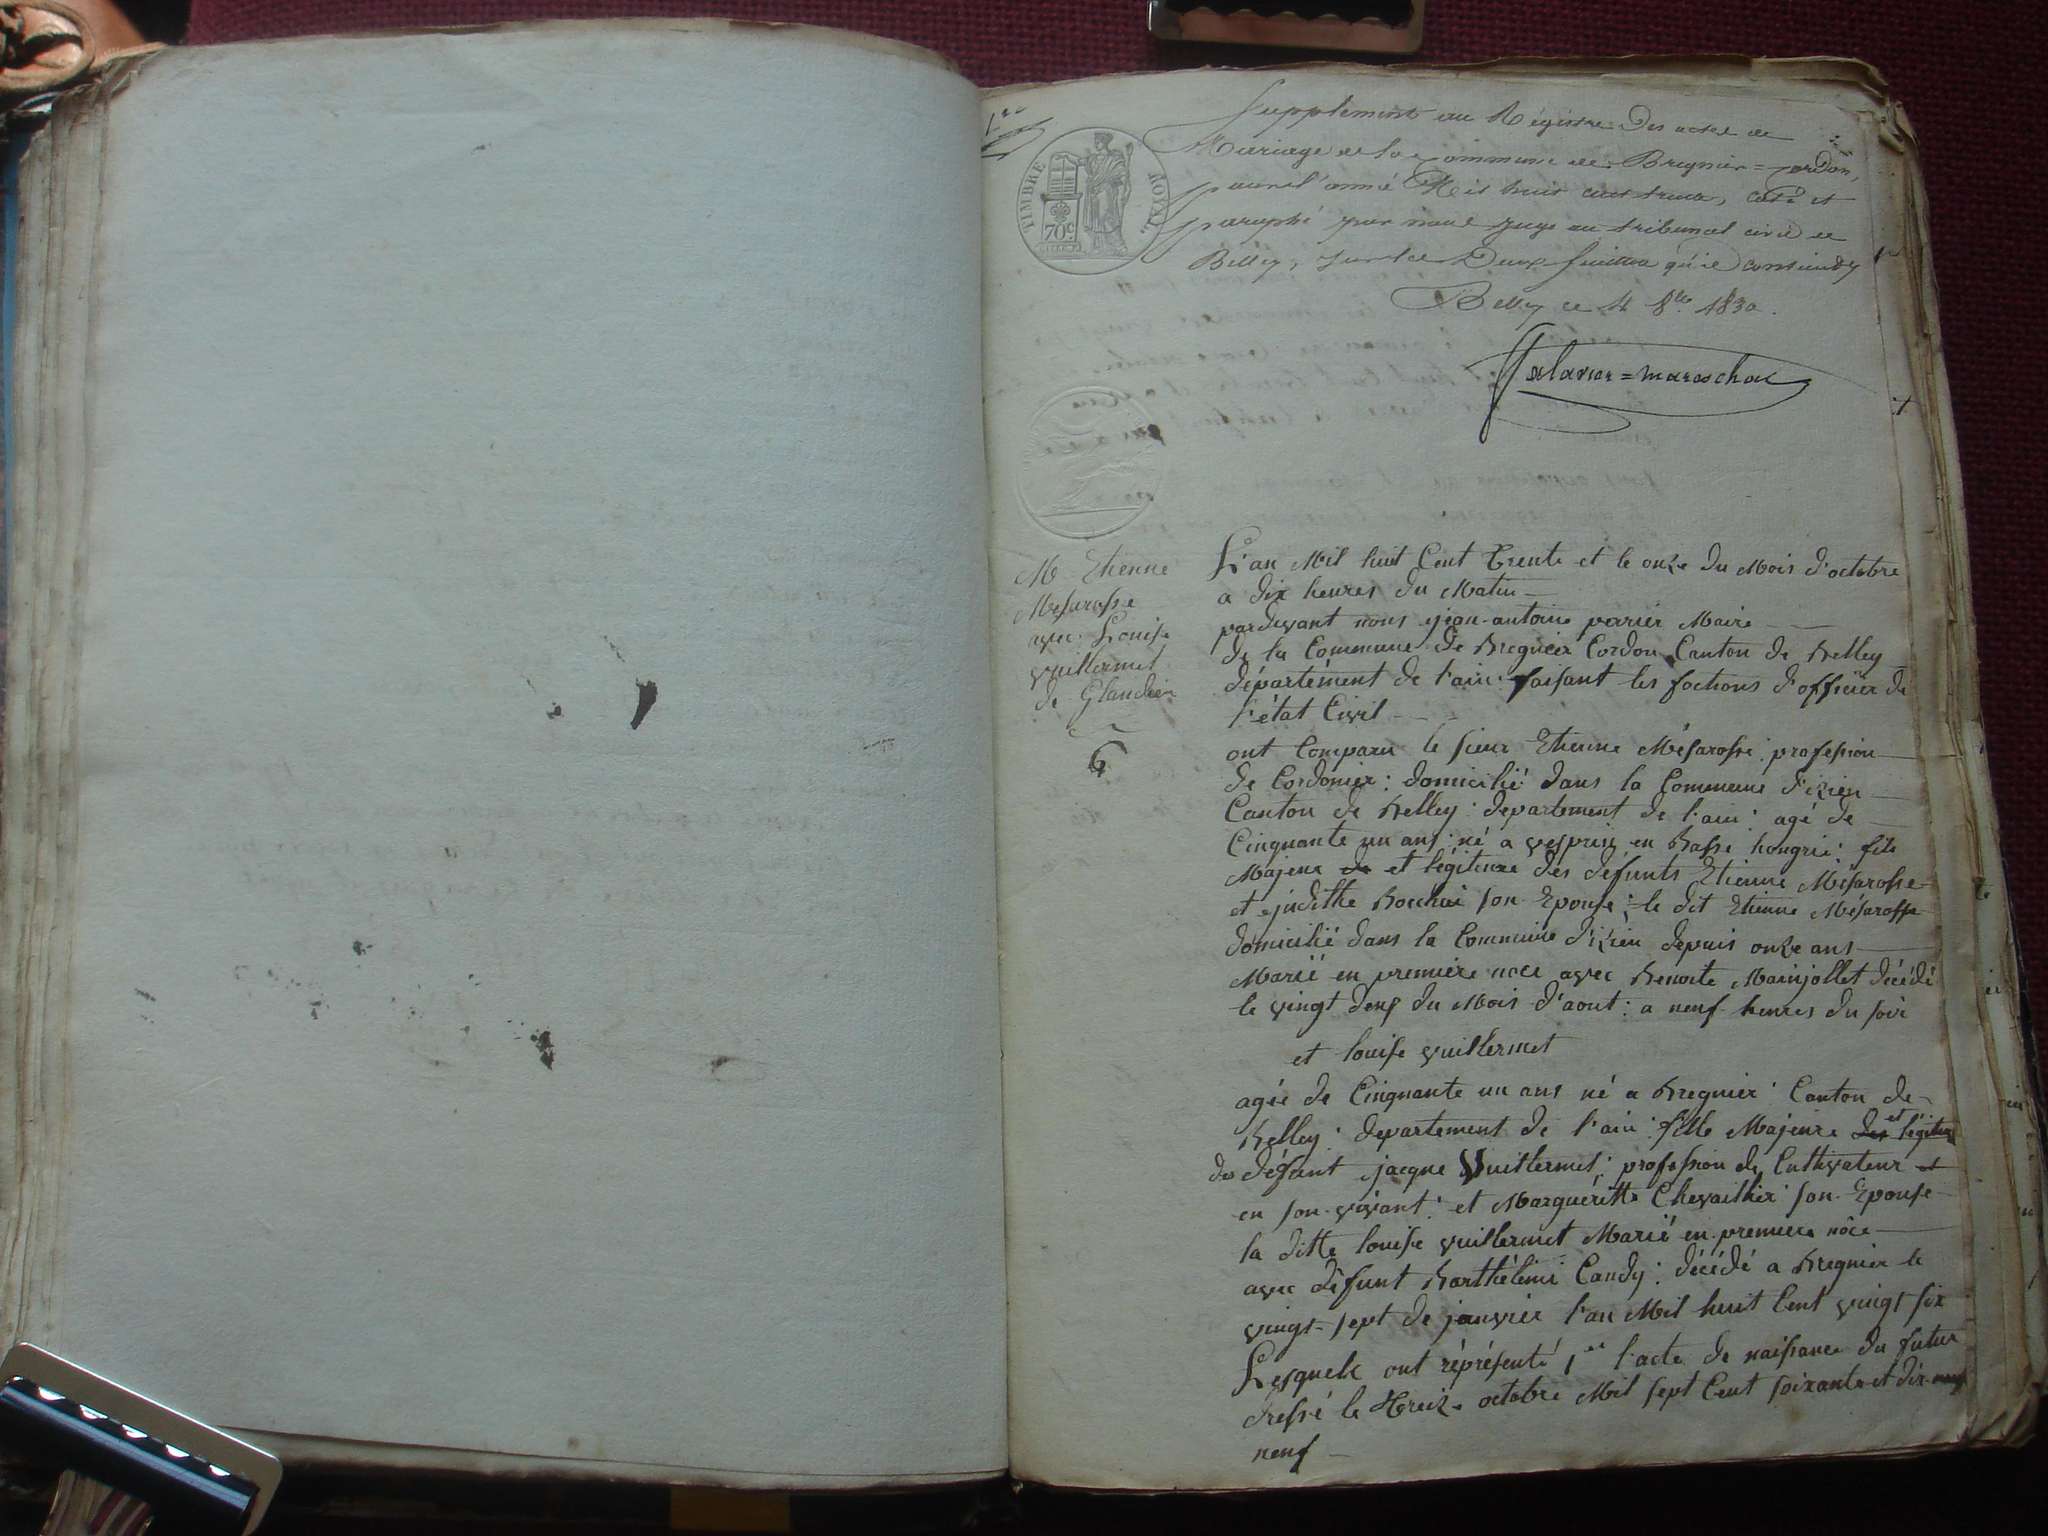 1er
Supplement au Régistre Des actes de
Mariage de la Commune de Bregnier=Cordon,
pour l'année Mil huit cent trente, coté et
paraphé par nous Juge au tribunal civil de
Belley, sur les Deux feuilles qu'il contient
Belley ce 4 8bre 1830.
TIMBRE ROYAL
70c
M Etienne
Mesarosse
avec Louise
vuillermet
de Glandieu
6
L'an Mil huit Cent trente et le onze du Mois d'octobre
a dix heures du Matin
pardevant nous jean-antoine parier Maire
de la Commune de Bregnier Cordon Canton de Belley
département de l'ain: faisant les foctions d'officier de
l'état Civil
ont Comparu le sieur Etienne Mésarosse: profession
de Cordonier: domicilié dans la Commune d'izieu
Canton de Belley: departement de l'ain: agé de
Cinquante un ans: né a vesprin en Basse hongrie: fils
Majeur de et légitime des défunts Etienne Mésarosse
et judithe son Epouse: le dit Etienne Mésarosse
domicilié dans la Commune d'izieu depuis onze ans
Marié en premiere noce avec Benoite Mainjollet décédé
le vingt deux du Mois d'aout: a neuf heures du soir
et louise vuillermet
agée de Cinquante un ans né a Bregnier: Canton de
Belley: departement de l'ain: fille Majeure des et légitime
du défunt jacque Vuillermet: profession de Cultivateur et
en son vivant: et Marguéritte Chevaillier son Epouse
la ditte louise vuillermet Marié en premiere nôce
avec défunt Barthélémi Candy: décédé a Bregnier le
vingt-sept de janvier l'an Mil huit Cent vingt six
Lesquels ont réprésenté 1er l'acte de naissance du futur
dressé le treize octobre Mil sept Cent soixante et dix
neuf